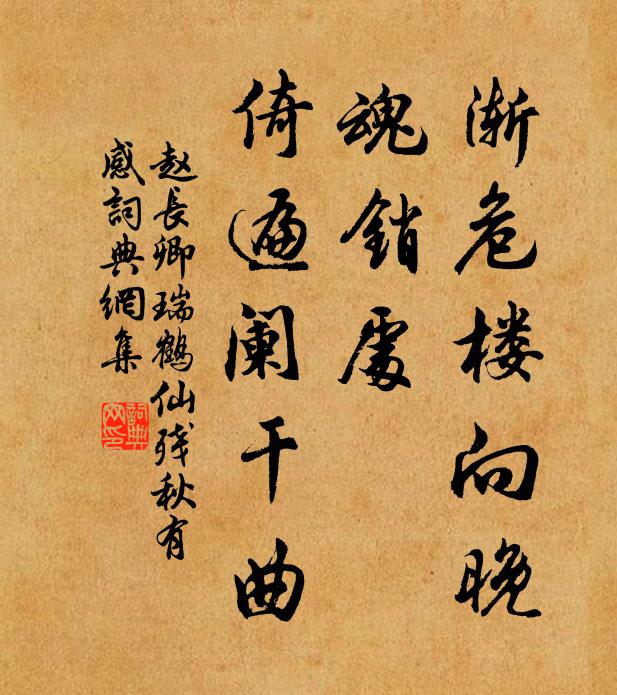 渐危楼向晚
魂销處
倚遍阑干曲
赵長卿瑞鶴仙残秋有
感詞典網集
詞典
网印